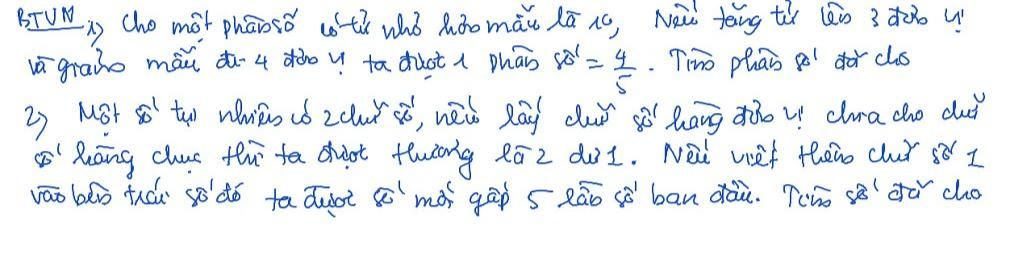 BTVN 1) Cho một phân số có tử nhỏ hơn mẫu là 10, Nếu tăng tử lên 3 đơn vị
và giảm mẫu đi 4 đơn vị ta được 1 phân số = 4/5. Tìm phân số đã cho
2) Một số tự nhiên có 2 chữ số, nếu lấy chữ số hàng đơn vị chia cho chữ
số hàng chục thì ta được thương là 2 dư 1. Nếu viết thêm chữ số 1
vào bên trái số đó ta được số mới gấp 5 lần số ban đầu. Tìm số đã cho